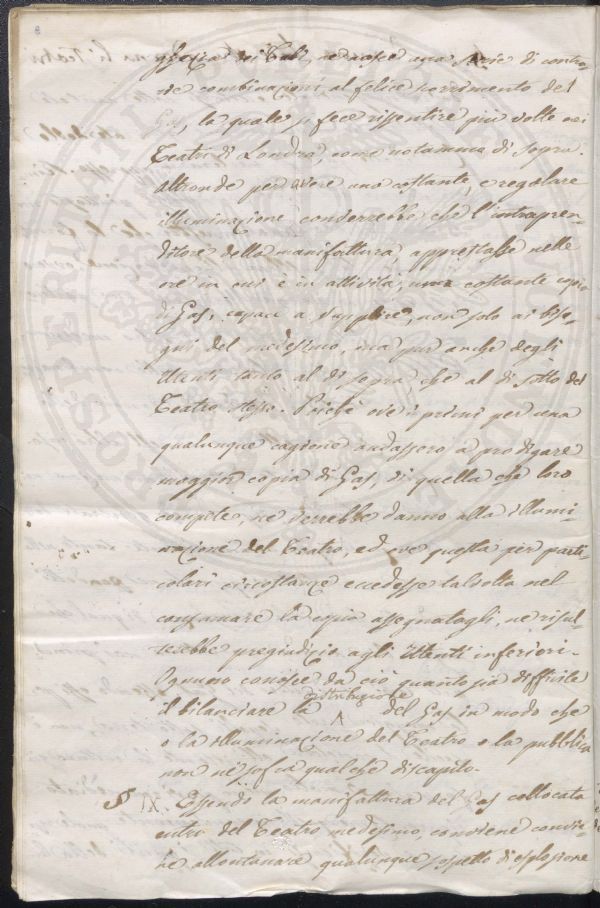 8
dei Tubi, ne nasce una serie di contra-
rie combinazioni al felice scorrimento del
Gas, la quale si fece risentire più volte nei
Teatri di Londra, come notammo di sopra.
Altronde per avere una costante, e regolare
illuminazione converrebbe che l'intrapren-
ditore della manifattura, apprestasse nelle
ore in cui è in attività, una costante copia
di Gas, capace a supplire, non solo ai biso-
gni del medesimo, ma pur anche degli
Utenti tanto al di sopra, che al di sotto del
Teatro stesso. Poiché ove i primi per una
qualunque cagione andassero a prodigare
maggior copia di Gas, di quella che loro
compete, ne verrebbe danno alla illumi-
nazione del Teatro, ed ove questa per parti-
colari circostanze eccedesse talvolta nel
consumare la copia assegnatagli, ne risul-
terebbe pregiudizio agli Utenti inferiori.
Ognuno conosce da ciò quanto sia difficile
il bilanciare la distribuzione del Gas in modo che
o la illuminazione del Teatro o la pubblica
non ne soffra qualche discapito.
§ IX. Essendo la manifattura del Gas collocata
entro del Teatro medesimo, conviene
ne allontanare qualunque sospetto di esplosione
PROSPERITATI PUBLICAE AUGENDAE